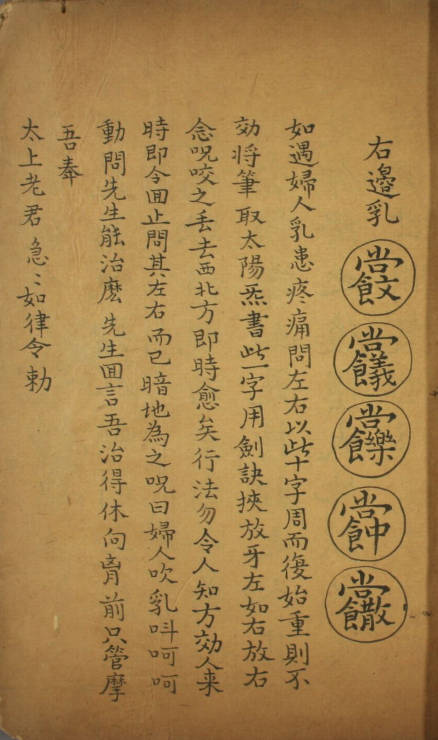 右邊乳
如遇婦人乳患疼痛問左右以此十字周而復始重則不
効将筆取太陽炁書此一字用劍訣挾放牙左如右放右
念呪咬之丢去西北方即時愈矣行法勿令人知方効人来
時即令囬止問其左右而已暗地為之呪曰婦人吹乳呌呵呵
動問先生能治麽先生囬言吾治得休向胷前只管摩
吾奉
太上老君急〻如律令勅